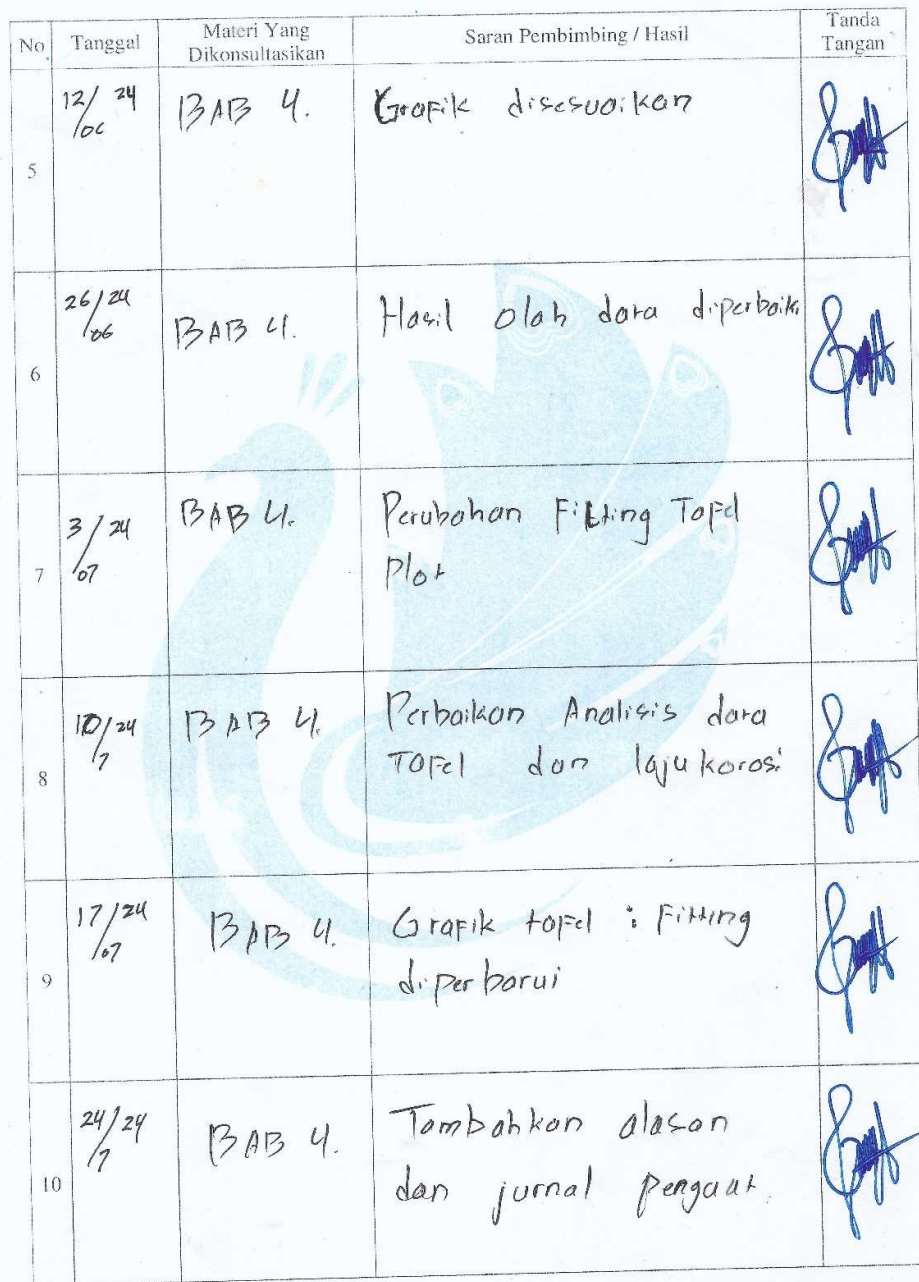 No Tanggal Materi Yang Dikonsultasikan Saran Pembimbing / Hasil Tanda Tangan
5 12/06 24 BAB 4. Grafik disesuaikan
6 26/06 24 BAB 4. Hasil olah data diperbaiki
7 3/07 24 BAB 4. Perubahan Fitting Tafel
Plot
8 10/7 24 BAB 4. Perbaikan Analisis data
Tafel dan laju korosi
9 17/07 24 BAB 4. Grafik tafel : Fitting
diperbarui
10 24/7 24 BAB 4. Tambahkan alasan
dan jurnal penguat